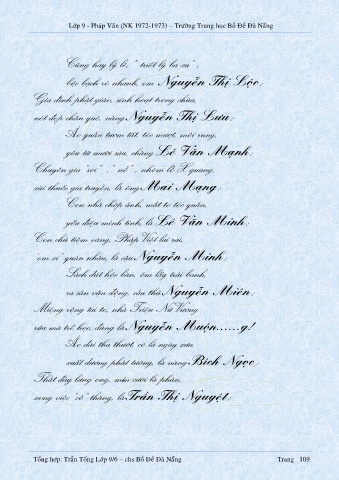 Lớp 9 - Pháp Văn (NK 1972-1973) – Trường Trung học Bồ Đề Đà Nẵng
Càng hay lý lẽ, " triết lý ba xu ",
bộc bạch rõ nhanh, em Nguyễn Thị Lộc;
Gia đình phật giáo, sinh hoạt trong chùa,
nét đẹp chân quê, nàng Nguyễn Thị Lưu;
Áo quần tươm tất, tóc mượt, môi rung,
yêu từ mười sáu, chàng Lê Văn Mạnh;
Chuyên gia "soi" , "nổ" , nhóm lò X quang,
xài thuốc gia truyền, là ông Mai Mạng;
Con nhà chép ảnh, mắt to tóc quăn,
yểu điệu minh tinh, là Lê Văn Minh;
Con chủ tiệm vàng, Pháp Việt lai rai,
"em ơi" quán nhậu, là cậu Nguyễn Minh;
Sinh diệt bốc bàn, ôm lấy trái banh,
ra sân vận động, cầu thủ Nguyễn Miên;
Miệng rộng tai to, nhà Triệu Nữ Vương
vừa mà trễ học, đúng là Nguyễn Muộn......g!
Áo dài tha thướt, cô là ngày xưa,
xuất dương phát tướng, là nàng Bích Ngọc;
Thắt đáy lưng ong, mỉm cười là phán,
xong việc "cô" thắng, là Trần Thị Nguyệt;
Tổng hợp: Trần Tống Lớp 9/6 – chs Bồ Đề Đà Nẵng Trang 109